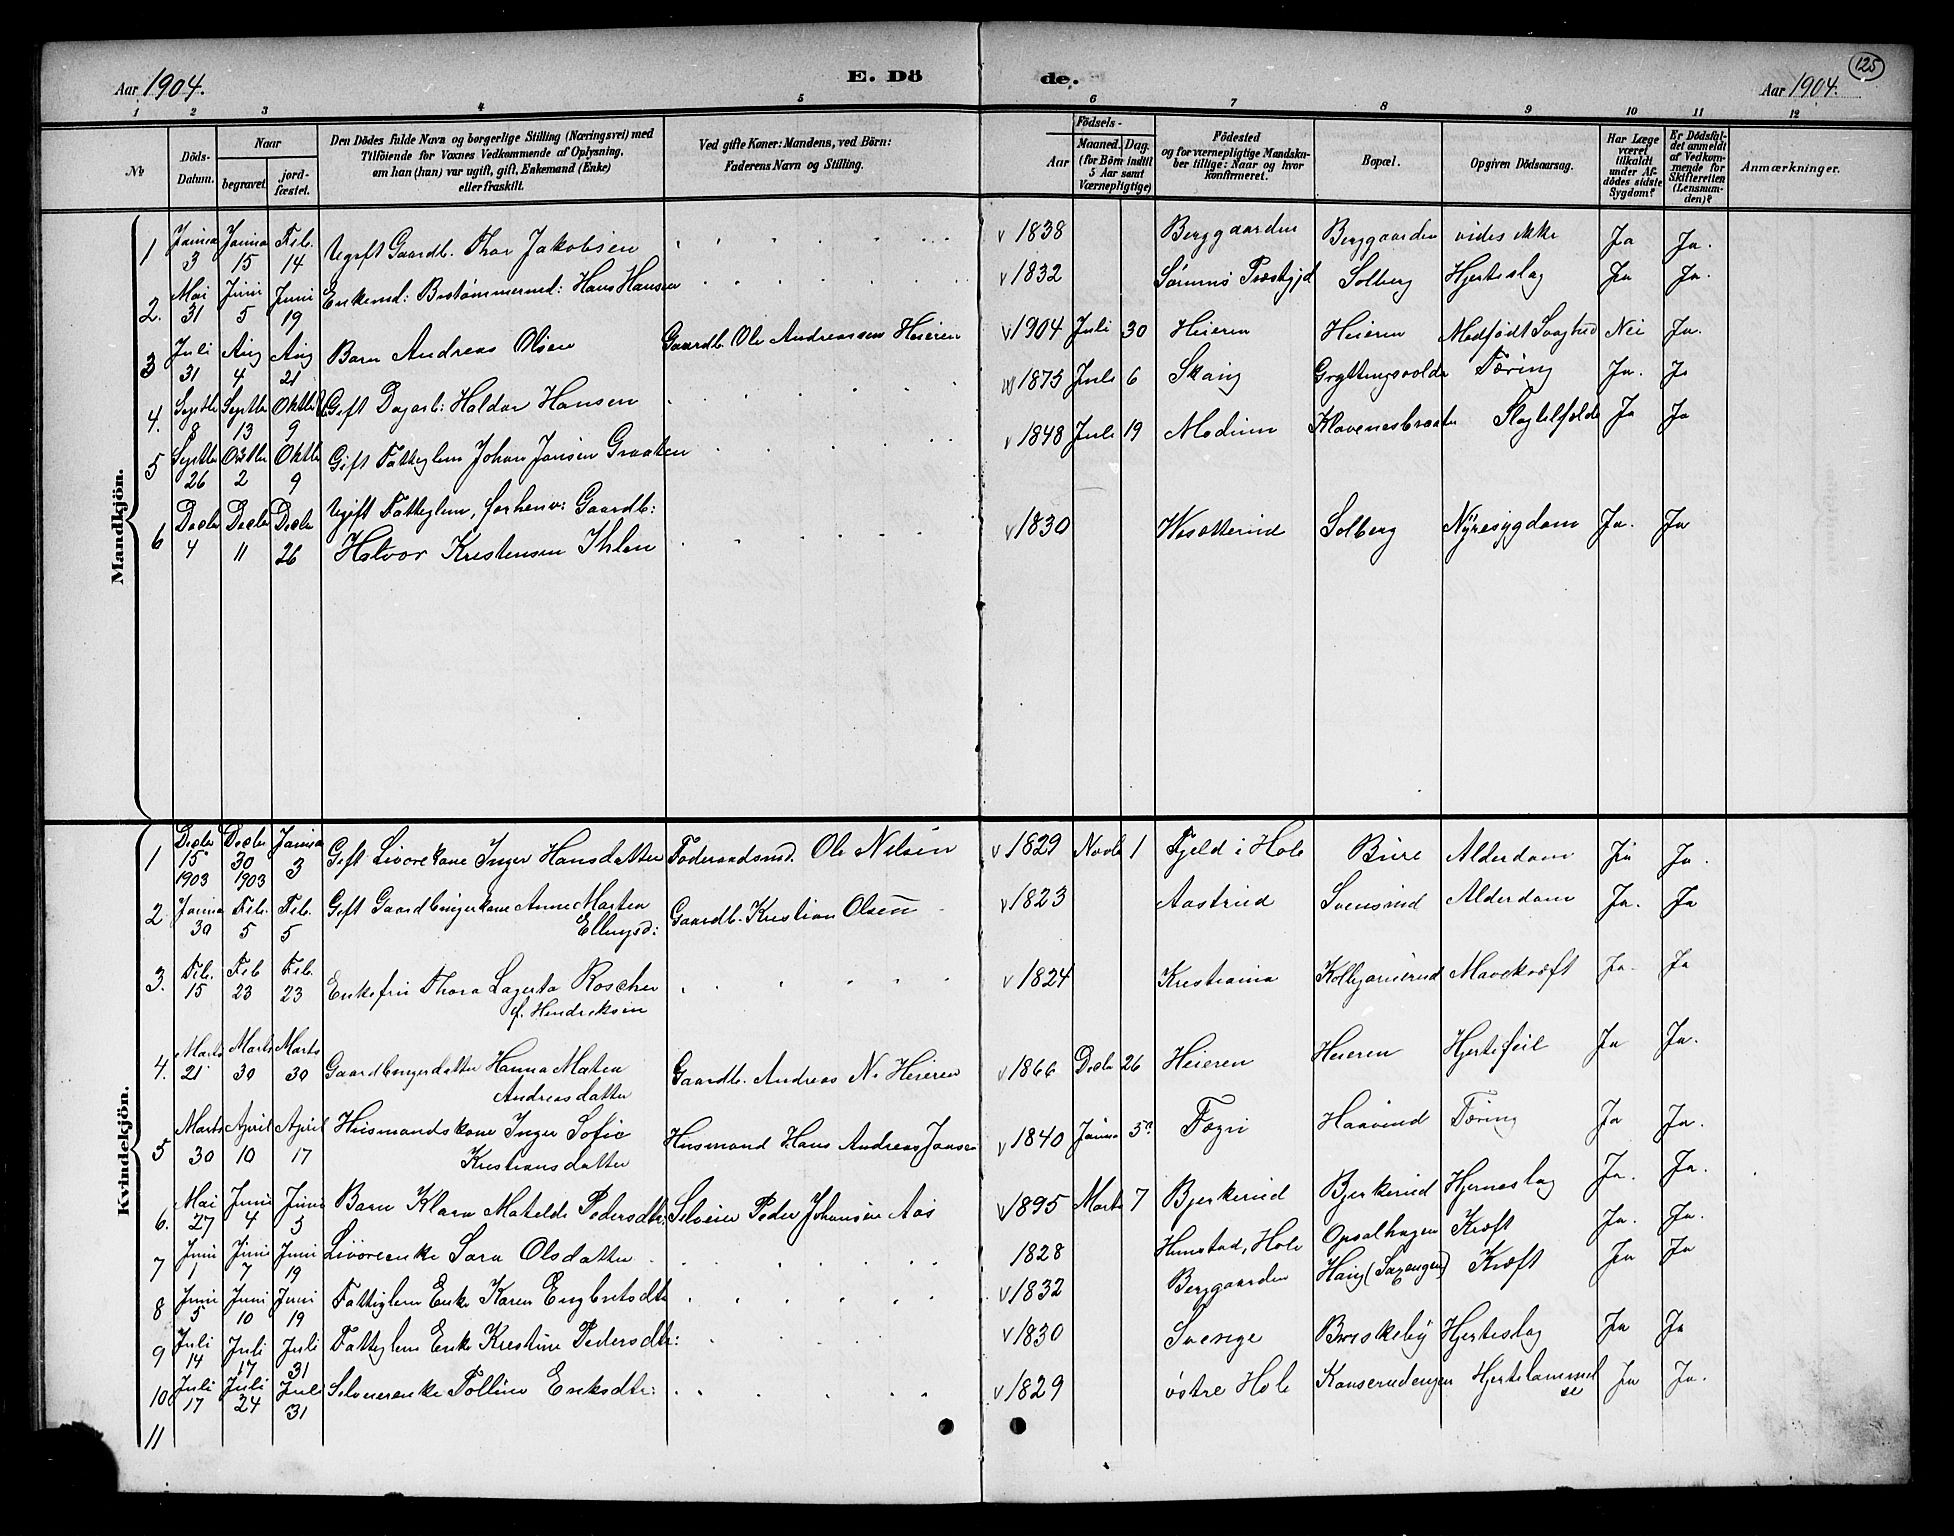 Aar 1904. E. Dö de. Aar 1904. 125
1 2 3 4 5 6 7 8 9 10 11 12
№ Döds-Datum. Naar begravet. jordfæstet. Den Dödes fulde Navn og borgerlige Stilling (Næringsvei) med Tilföiende for Voxnes Vedkommende af Oplysning, om han (hun) var ugift, gift, Enkemand (Enke) eller fraskilt. Ved gifte Koner: Mandens, ved Börn: Faderens Navn og Stilling. Födsels- Aar Maaned. Dag. (for Börn indtil 5 Aar samt Værnepligtige) Födested og for værnepligtige Mandskaber tillige: Naar og hvor konfirmeret. Bopæl. Opgiven Dödsaarsag. Har Læge været tilkaldt under Afdödes sidste Sygdom? Er Dödsfaldet anmeldt af Vedkommende for Skifteretten (Lensmanden)? Anmærkninger.
Mandkjön.
1 Janua 3 Janua 15 Feb. 14 Ugift Gaardb. Thor Jakobsen v 1838 Berggaarden Berggaarden vides ikke Ja Ja.
2. Mai 31 Juni 5 Juni 19 Enkemd: Hans Hansen v 1832 Sørums Præstgjd Solberg Hjerteslag Ja Ja.
3 Juli 31 Aug 4 Aug 21 Barn Andreas Olsen Gaardb. Ole Andreassen Heieren v 1904 Juli 30 Heieren Heieren Medfødt Svaghed Nei Ja.
4. Septbr 8 Septbr 13 Oktbr 9 Gift Dagarb: Haldor Hansen 1875 Juli 6 Skaug Gryttingsvolde Tæring Ja. Ja
5 Septbr 26 Oktbr 2 Oktbr 9 Gift Fattiglem Johan Jansen Graaten v 1848 Juli 19 Modum Klavenesbraaten Slagtilfælde Ja Ja
6 Decbr 4 Decbr 11 Decbr 26 Ugift Fattiglem, forhenv: Gaardb: Halvor Kristensen Ihlen v 1830 Solberg Nyresygdom Ja. Ja
Kvindekjön.
1 Decbr 15 1903 Decbr 30 1903 Janua 3 Gift Livørekone Inger Hansdatter Føderaadsmd. Ole Nilsen v 1829 Novbr 1 Fjeld i Hole Bure Alderdom Ja Ja.
2 Janua 30 Feb. 5 Feb. 5 Gift Gaardbrugerkone Anne Martea Ellingsd: Gaardb. Kristian Olsen v 1823 Aastrud Svensrud Alderdom Ja. Ja
3. Feb. 15 Feb 23 Feb. 23 Enkefru Thora Lagerta Roscher f. Hendriksen v 1824 Kristiania Mavekræft Ja. Ja
4. Marts 21 Marts 30 Marts 30 Gaardbrugerdatter Hanna Matea Andreasdatter Gaardb. Andreas N. Heieren v 1866 Decbr 26 Heieren Heieren Hjertefeil Ja Ja.
5 Marts 30 April 10 April 17 Husmandskone Inger Sofie Kristiansdatter Husmand Hans Andreas Jansen v 1840 Janua 5 Fægri Haavind Tæring Ja Ja.
6. Mai 27 Juni 4 Juni 5 Barn Klara Matelde Pedersdtr: Selveier Peder Johansen Aas v 1895 Marts 7 Bjerkerud Bjerkerud Hjerneslag Ja. Ja.
7 Juni 1 Juni 7 Juni 19 Livøreenke Sara Olsdatter 1828 Hunstad, Hole Opsalhagen Kræft Ja. Ja.
8 Juni 5 Juni 10 Juni 19 Fattiglem Enke Karen Engbretsdtr v 1832 Berggaarden Haug Kræft Ja Ja
9 Juli 14 Juli 17 Juli 31 Fattiglem Enke Kristine Pedersdtr: v 1830 Sverige Briskeby Hjerteslag Ja Ja
10 Juli 17 Juli 24 Juli 31 Selveierenke Polline Eriksdtr: v 1829 østre Hole Hjertelammelse Ja Ja.
11